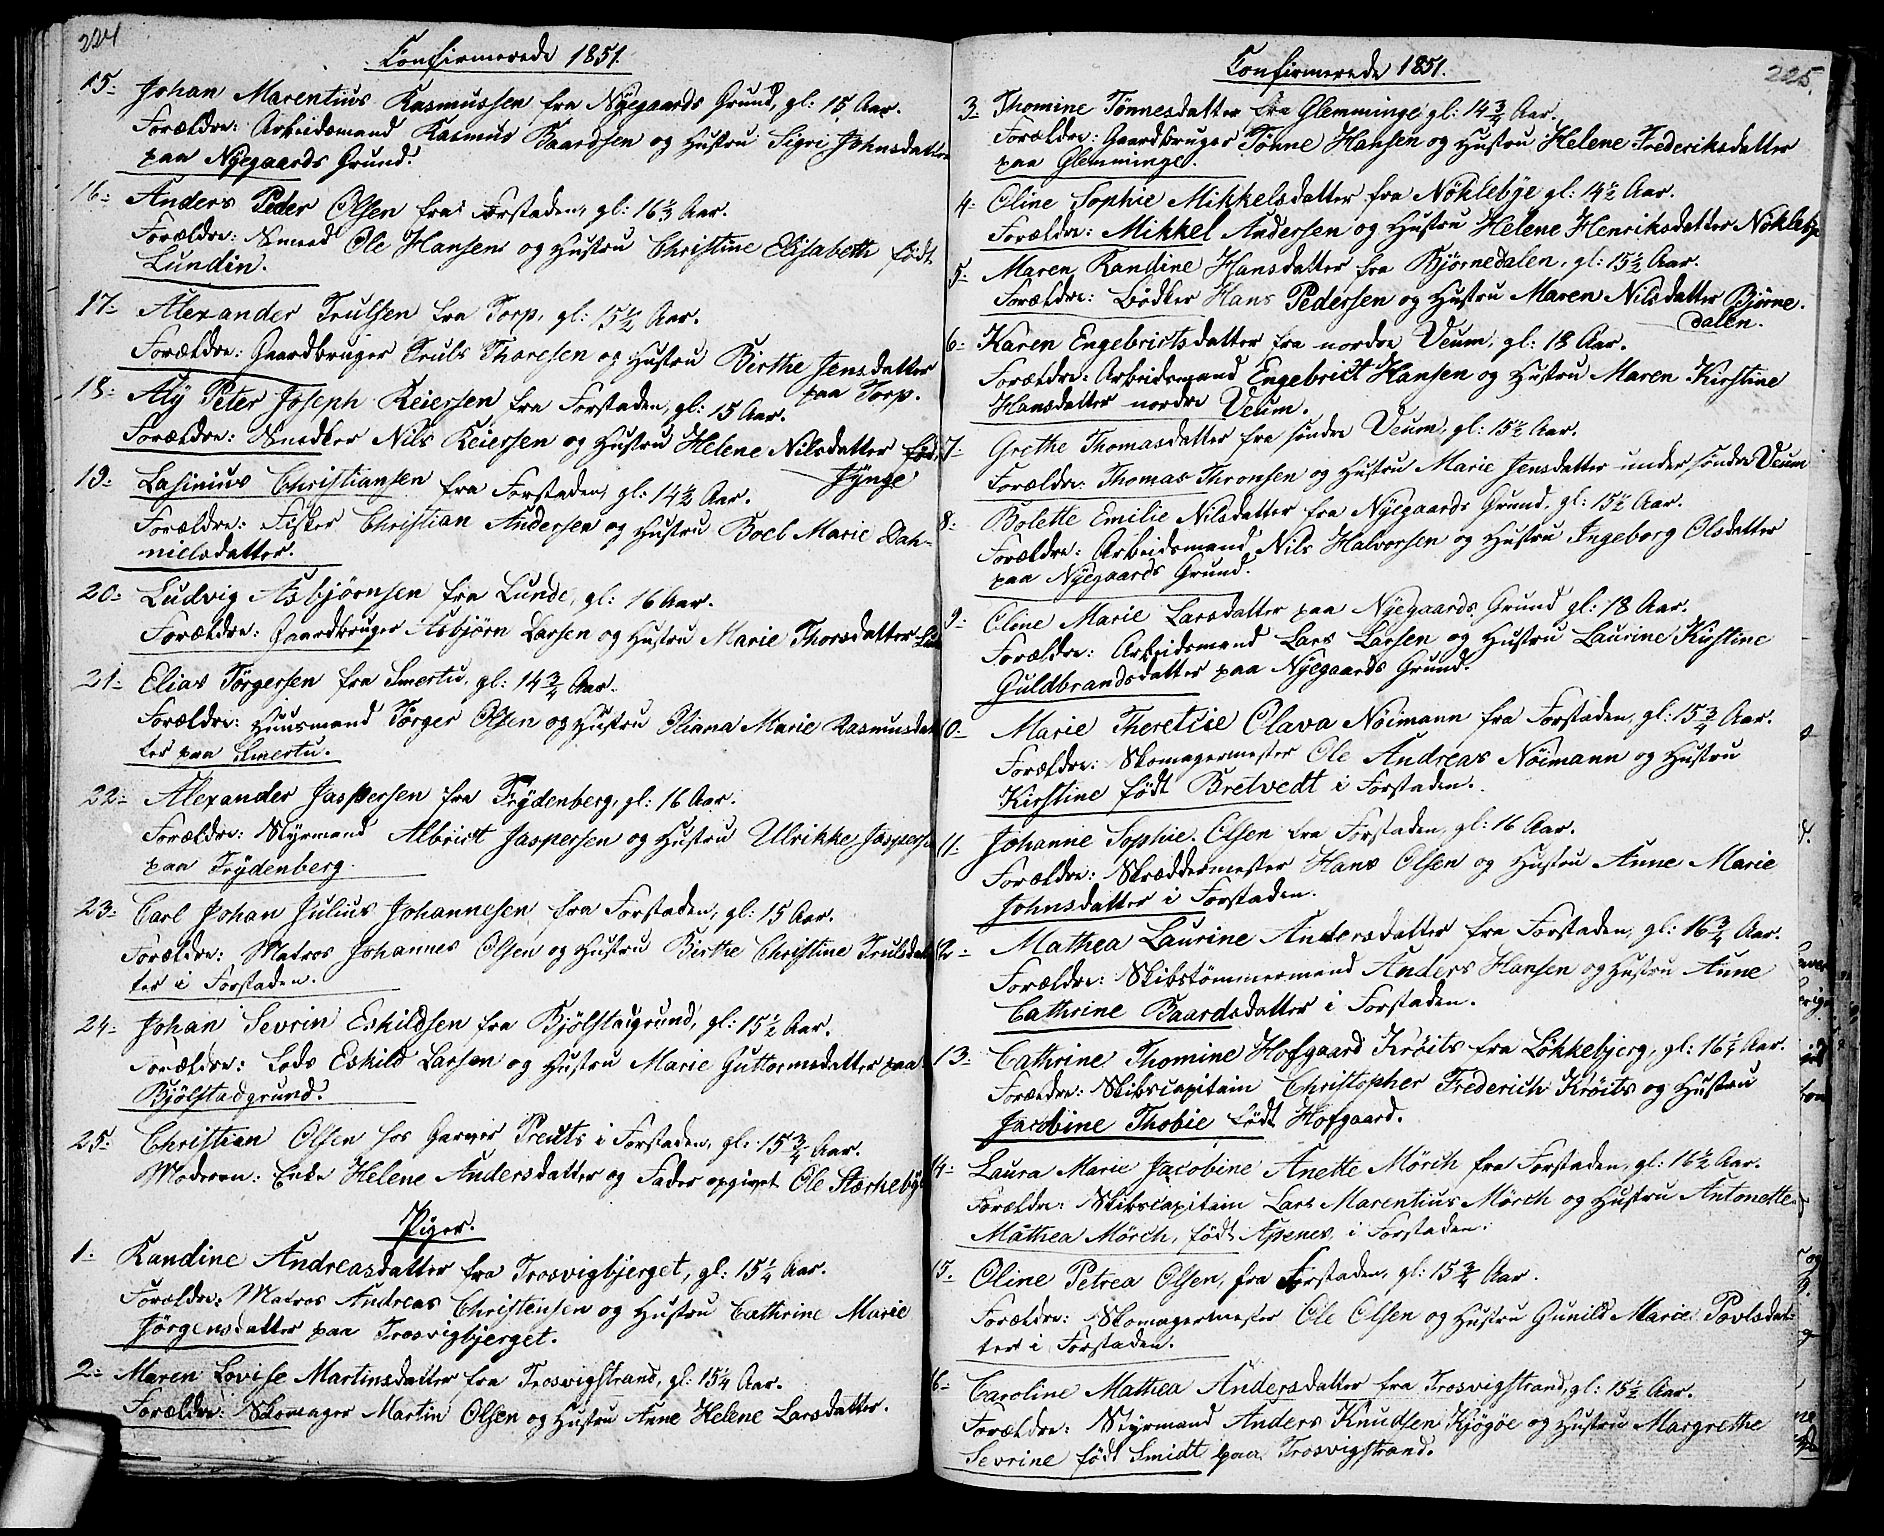 224
Confirmerede 1851.
15. Johan Marentius Rasmussen fra Nyegaards Grund, gl: 15 Aar.
Forældre: Arbeidsmand Rasmus Baardsen og Hustru Sigri Johnsdatter
paa Nyegaards Grund.
16. Anders Peder Olsen fra Forstaden, gl: 16 3/4 Aar.
Forældre: Smed Ole Hansen og Hustru Christine Elisabeth født
Lundin.
17. Alexander Trulsen fra Torp, gl: 15 1/2 Aar.
Forældre: Gaardbruger Truls Thoresen og Hustru Birthe Jensdatter
paa Torp.
18. Aly Peter Joseph Reiersen fra Forstaden, gl: 15 Aar.
Forældre: Snedker Nils Reiersen og Hustru Helene Nilsdatter fød
Jynge
19. Lasinius Christiansen fra Forstaden, gl: 14 1/2 Aar.
Forældre: Fisker Christian Andersen og Hustru Boel Marie Dah-
nielsdatter.
20. Ludvig Asbjørnsen fra Lunde, gl: 16 Aar.
Forældre: Gaardbruger Asbjørn Larsen og Hustru Marie Thorsdatter
21. Elias Törgersen fra Smertu, gl: 14 3/4 Aar.
Forældre: Huusmand Törger Olsen og Hustru Oliana Marie Rasmusdat
ter paa Smertu.
22. Alexander Jaspersen fra Frydenberg, gl: 16 Aar.
Forældre: Styrmand Albrict Jaspersen og Hustru Ulrikke Jaspersen
paa Frydenberg.
23. Carl Johan Julius Johannesen, fra Forstaden, gl: 15 Aar.
Forældre: Matros Johannes Olsen og Hustru Birthe Christine Trulsdat
ter i Forstaden.
24. Johan Sevrin Eskildsen fra Bjölstadgrund, gl: 15 1/2 Aar.
Forældre: Lods Eskild Larsen og Hustru Marie Guttormsdatter paa
Bjölstadgrund.
25. Christian Olsen hos Garver Preuts i Forstaden, gl: 15 3/4 Aar.
Moderen: Enke Helene Andersdatter og Fader opgivet Ole Størkeby
Piger.
1. Randine Andreasdatter fra Trosvigbjerget, gl: 15 1/4 Aar.
Forældre: Matros Andreas Christensen og Hustru Cathrine Marie
Jörgensdatter paa Trosvigbjerget.
2. Maren Lovise Martinsdatter fra Trosvigstrand, gl: 15 1/4 Aar.
Forældre: Skomager Martin Olsen og Hustru Anne Helene Larsdatter.
225.
Confirmerede 1851.
3. Thomine Tönnesdatter fra Glemminge gl: 14 3/4 Aar.
Forældre: Gaardbruger Tönne Hansen og Hustru Helene Frederiksdatter
paa Glemminge.
4. Oline Sophie Mikkelsdatter fra Nöklebye gl: 14 1/2 Aar.
Forældre: Mikkel Andersen og Hustru Helene Henriksdatter Nöklebye
5. Maren Randine Hansdatter fra Bjørnedalen, gl: 15 1/2 Aar.
Forældre: Bödker Hans Pedersen og Hustru Maren Nilsdatter Bjørne-
dalen.
6. Karen Engebrictsdatter fra nordre Veum, gl: 18 Aar.
Forældre: Arbeidsmand Engebrict Hansen og Hustru Maren Kirstine
Hansdatter nordre Veum.
7. Grethe Thomasdatter fra söndre Veum, gl: 15 1/2 Aar.
Forældre: Thomas Thronsen og Hustru Marie Jensdatter under söndre Veum
8. Bolette Emilie Nilsdatter fra Nyegaards Grund, gl: 15 1/2 Aar.
Forældre: Arbeidsmand Nils Halvorsen og Hustru Ingeborg Olsdatter
paa Nyegaards Grund.
9. Oline Marie Larsdatter paa Nyegaards Grund gl: 18 Aar.
Forældre: Arbeidsmand Lars Larsen og Hustru Laurine Kirstine
Guldbrandsdatter paa Nyegaards Grund.
10. Marie Theretcie Olava Nöimann fra Forstaden, gl: 15 3/4 Aar.
Forældre: Skomagermester Ole Andreas Nöimann og Hustru
Kirstine født Bretvedt i Forstaden.
11. Johanne Sophie Olsen fra Forstaden, gl: 16 Aar.
Forældre: Skræddermester Hans Olsen og Hustru Anne Marie
Johnsdatter i Forstaden.
12. Mathea Laurine Andersdatter fra Forstaden, gl: 16 3/4 Aar.
Forældre: Skibstömmermand Anders Hansen og Hustru Anne
Cathrine Baardsdatter i Forstaden.
13. Cathrine Thomine Hofgaard Kröits fra Lökkebjerg, gl: 16 1/4 Aar.
Forældre: Skibscapitain Christopher Frederich Kröits og Hustru
Jacobine Thobie født Hofgaard.
14. Laura Marie Jacobine Anette Mörch fra Forstaden, gl: 16 1/2 Aar.
Forældre: Skibscapitain Lars Marentius Mörch og Hustru Antonette
Mathea Mörch, født Apenes, i Forstaden.
15. Oline Petrea Olsen, fra Forstaden, gl: 15 3/4 Aar.
Forældre: Skomagermester Ole Olsen og Hustru Gunild Marie Povlsdat-
ter i Forstaden.
16. Caroline Mathea Andersdatter fra Trosvigstrand, gl: 15 1/2 Aar.
Forældre: Styrmand Anders Knudsen Kjögöe og Hustru Margrethe
Sevrine født Smidt paa Trosvigstrand.